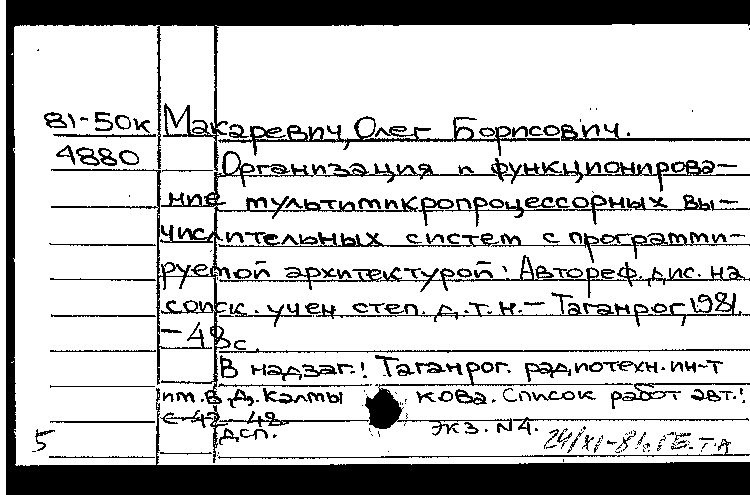 81-50к Макаревич, Олег Борисович.
4880 Организация и функционирова-
ние мультимикропроцессорных вы-
числительных систем с программи-
руемой архитектурой: Автореф. дис. на
соиск. учен. степ. д.т.н. – Таганрог, 1981.
– 48с.
В надзаг.: Таганрог. радиотехн. ин-т
им. В. Д. Калмыкова. Список работ авт.:
с. 42-48
ДСП. экз. N4.
5 24/XI-81г. ГБ.